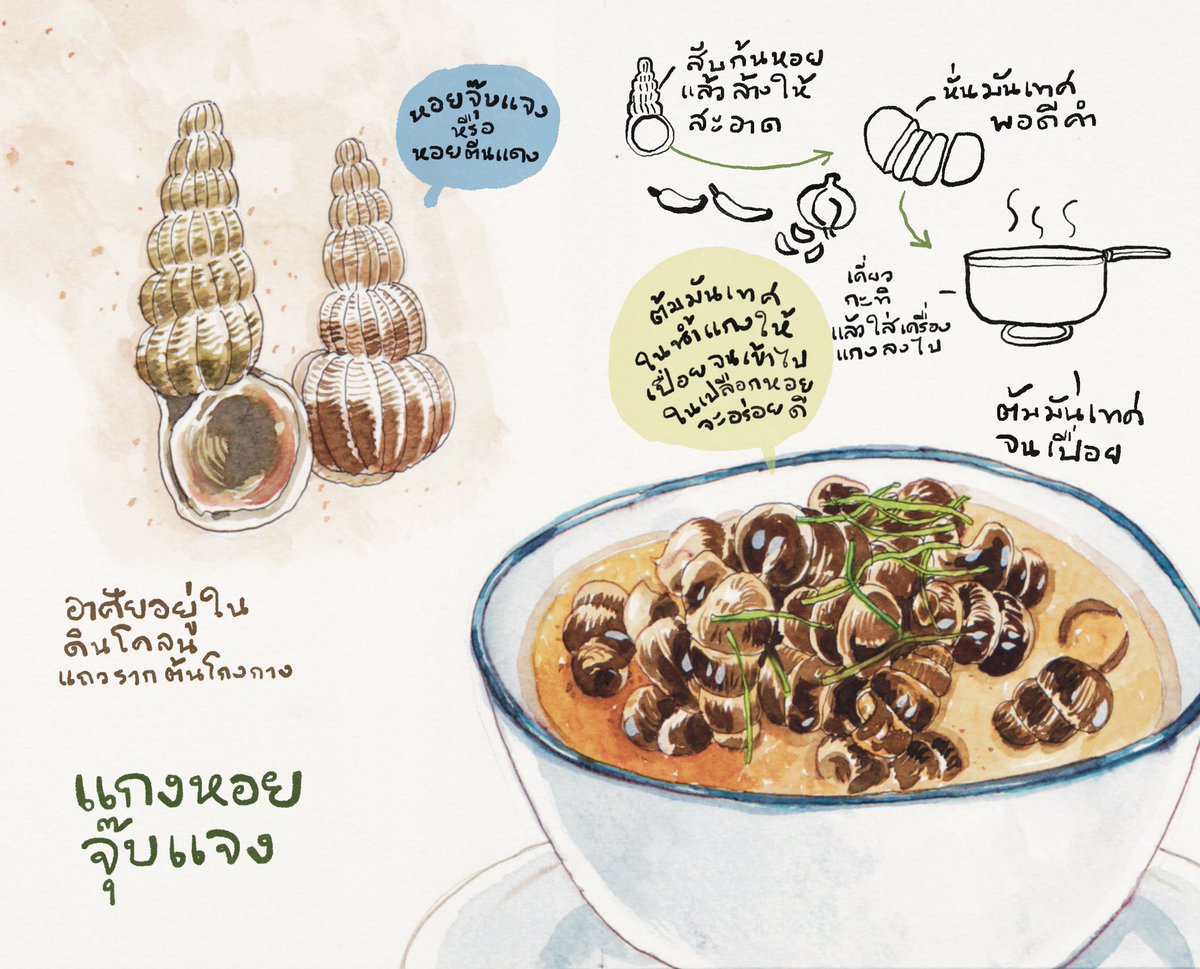 หอยจุ๊บแจง
หรือ
หอยตีนแดง
สับก้นหอย
แล้วล้างให้
สะอาด
หั่นมันเทศ
พอดีคำ
เคี่ยว
กะทิ
แล้วใส่เครื่อง
แกงลงไป
ต้มมันเทศ
ในน้ำแกงให้
เปื่อยจนเข้าไป
ในเปลือกหอย
จะอร่อยดี
ต้มมันเทศ
จนเปื่อย
อาศัยอยู่ใน
ดินโคลน
แถวรากต้นโกงกาง
แกงหอย
จุ๊บแจง